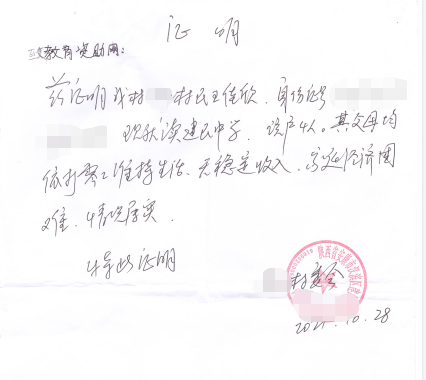 证明
教育资助网:
兹证明我村 村民王佳欣、身份证号
现就读建民中学、该户4人。其父母均
依打零工维持生活、无稳定收入、家庭经济困
难、情况属实
特此证明
村委会
2021.10.28